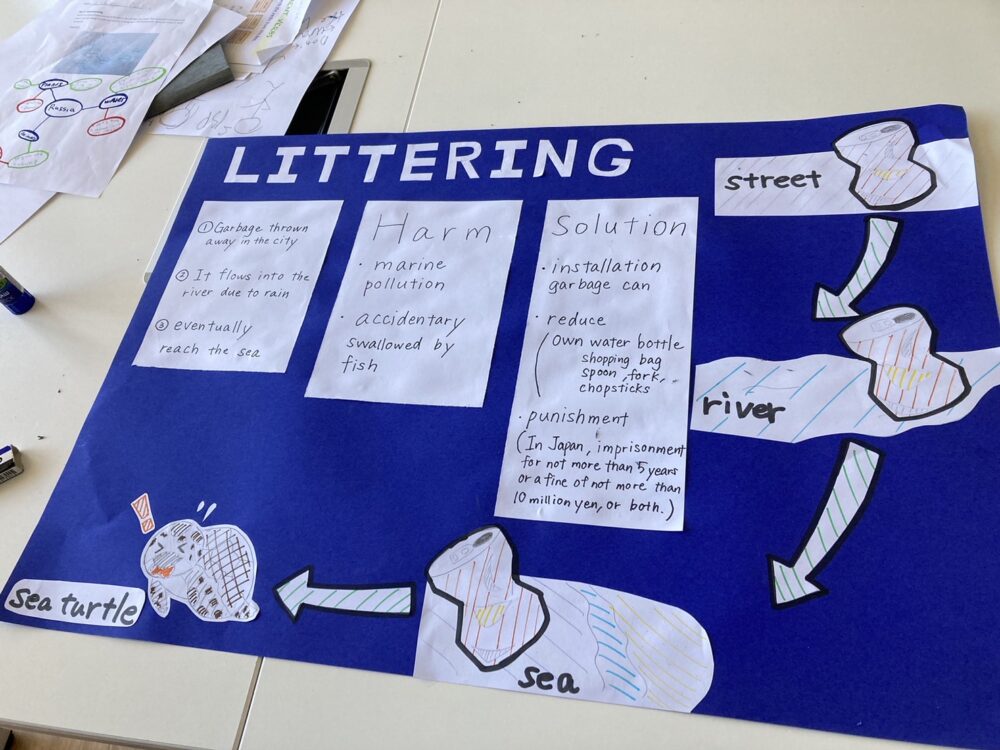 LITTERING
① Garbage thrown
away in the city
② It flows into the
river due to rain
③ eventually
reach the sea
Harm
· marine
pollution
· accidentary
swallowed by
fish
Solution
· installation
garbage can
· reduce
(own water bottle
shopping bag
spoon, fork,
chopsticks
· punishment
(In Japan, imprisonment
for not more than 5 years
or a fine of not more than
10 million yen, or both.)
street
river
sea
sea turtle
Russia